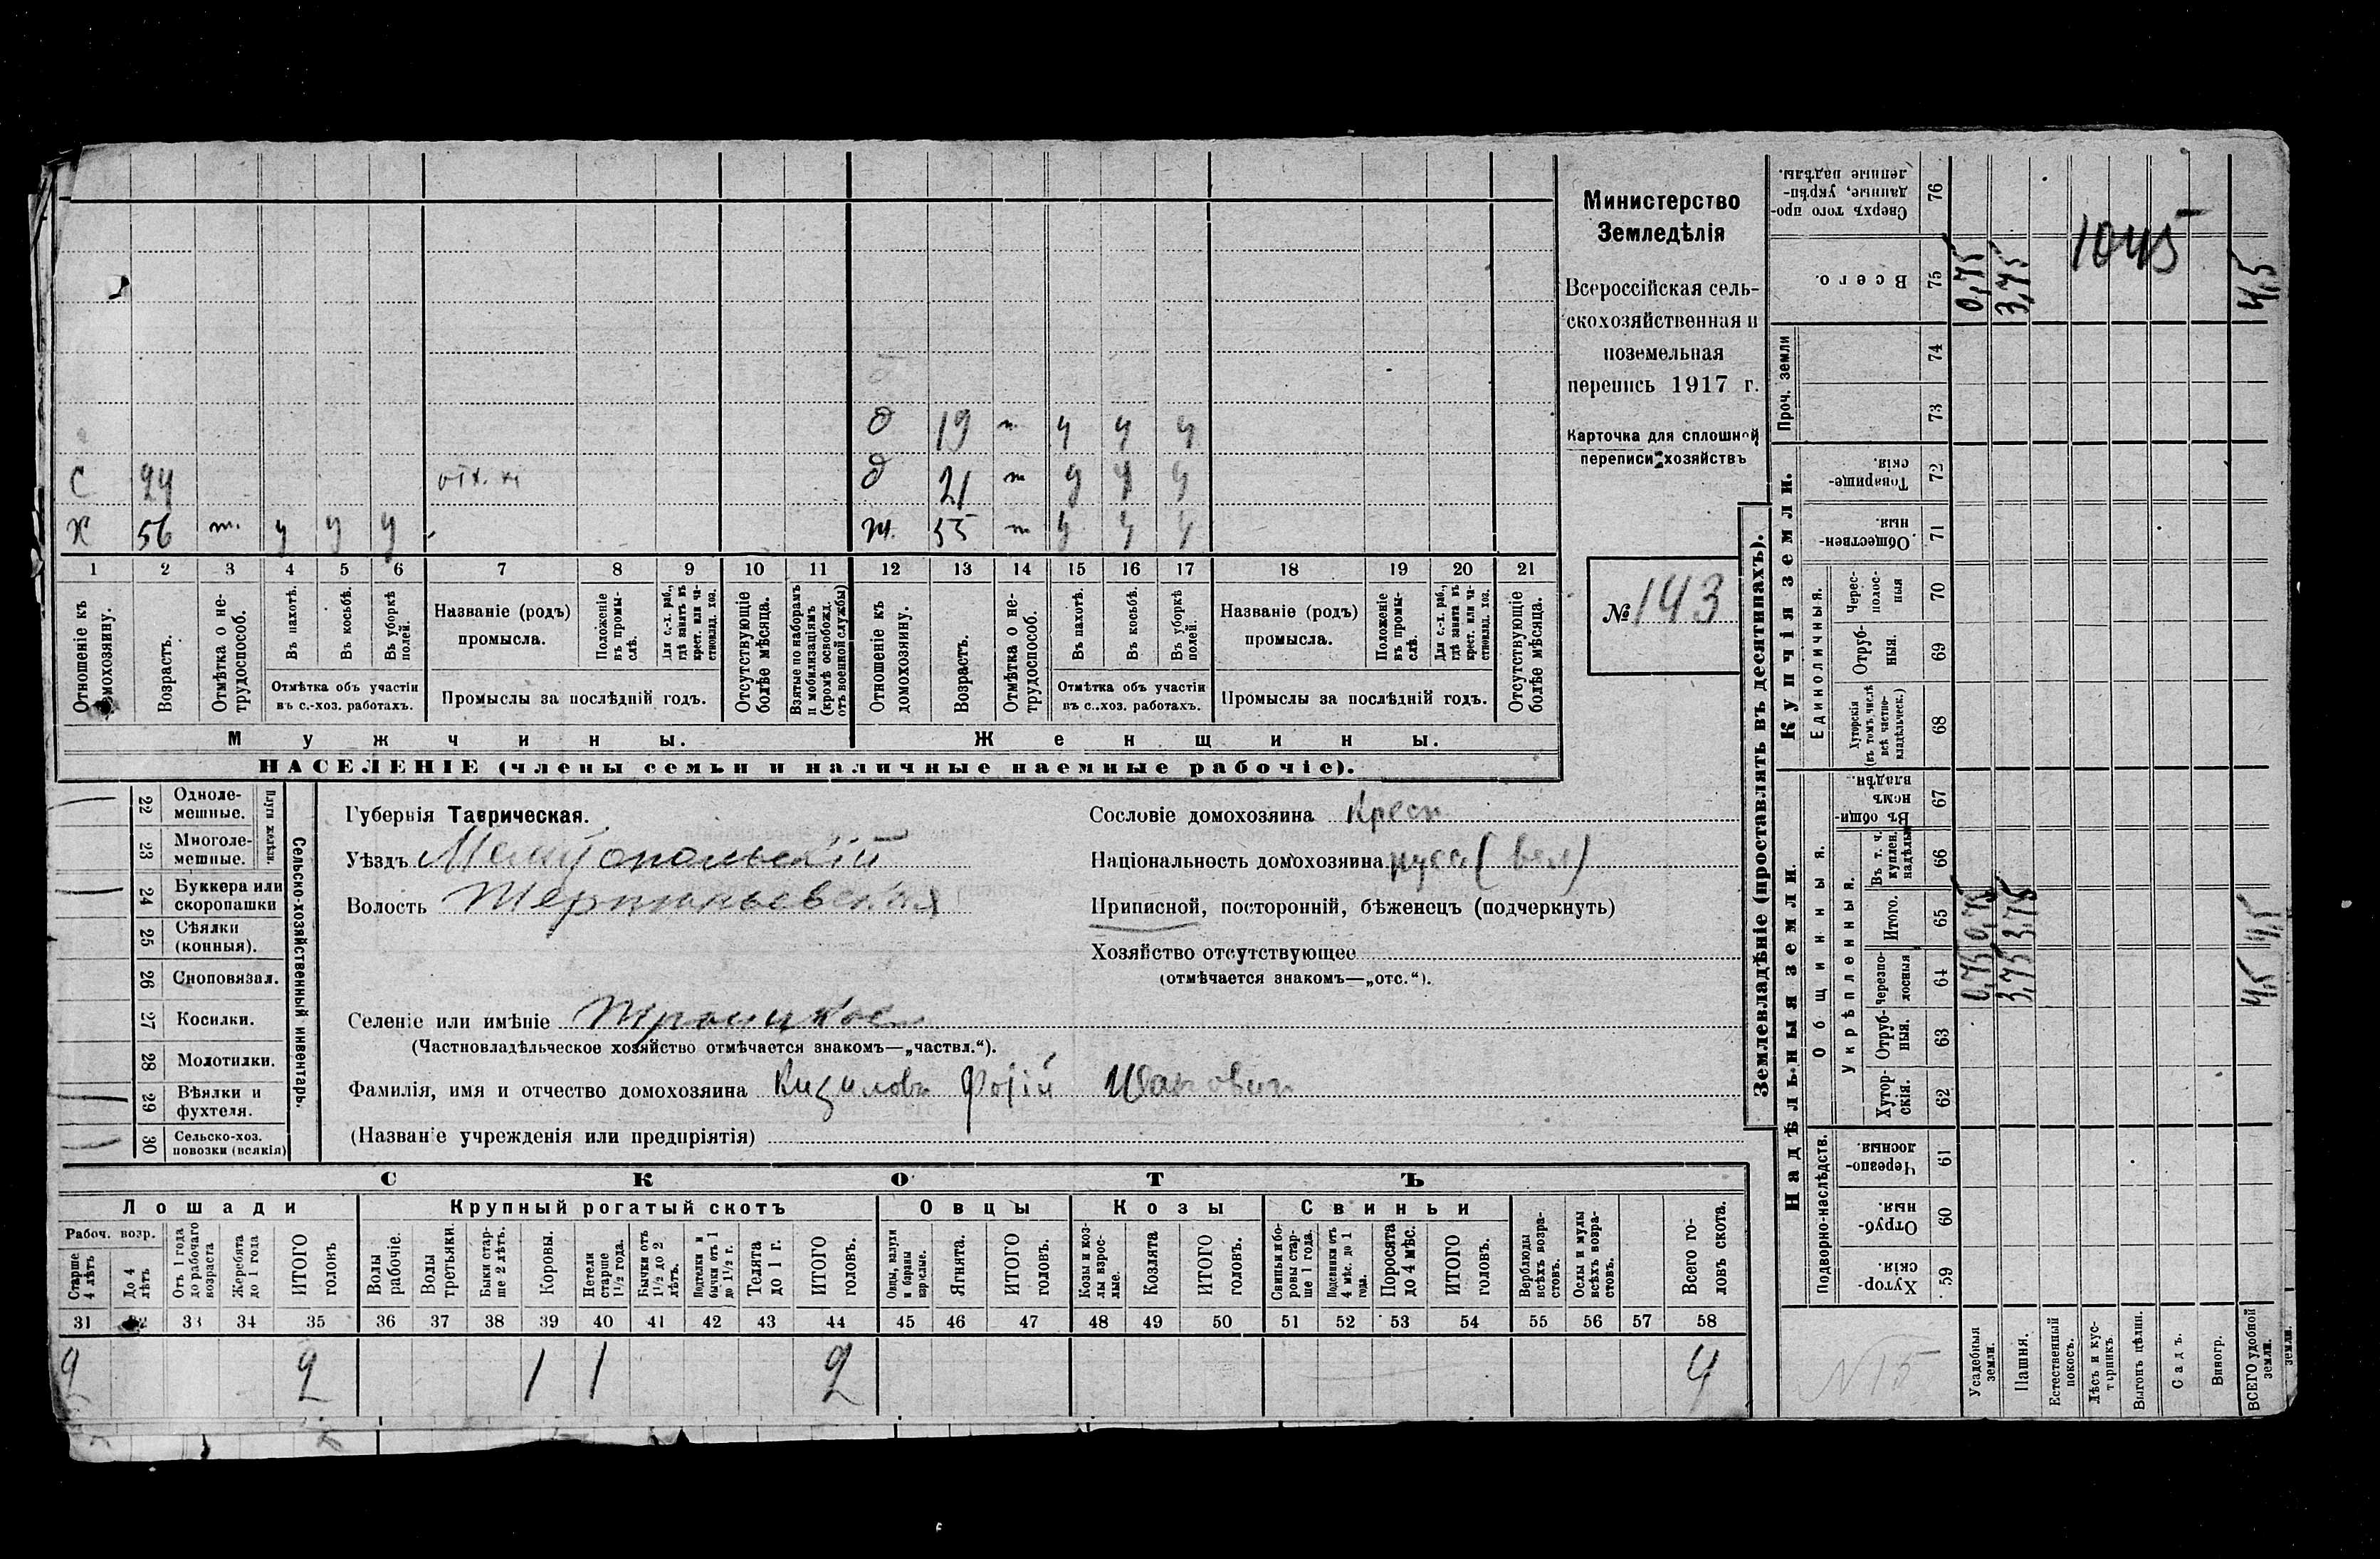 Министерство
Земледѣлія
Всероссійская сель-
скохозяйственная и
поземельная
перепись 1917 г.
Карточка для сплошной
переписи хозяйствъ
№ 143
д 19 т у у у
С 24 д 21 т у у у
Х 56 т. у у у ж. 55 т у у у
1 2 3 4 5 6 7 8 9 10 11 12 13 14 15 16 17 18 19 20 21
Отношеніе къ домохозяину.
Возрастъ.
Отмѣтка о не-
трудоспособ.
Въ пахотѣ.
Въ косьбѣ.
Въ уборкѣ
полей.
Отмѣтка объ участіи
въ с.-хоз. работахъ.
Названіе (родъ)
промысла.
Положеніе
въ промы-
слѣ.
Для с.-х. раб.,
гдѣ занятъ въ
крест. или ча-
стновлад. хоз.
Промыслы за послѣдній годъ.
Отсутствующіе
болѣе мѣсяца.
Взятые по наборамъ
и мобилизаціямъ
(кромѣ освобожд.
отъ военной службы)
Отношеніе къ
домохозяину.
Возрастъ.
Отмѣтка о не-
трудоспособ.
Въ пахотѣ.
Въ косьбѣ.
Въ уборкѣ
полей.
Отмѣтка объ участіи
въ с..хоз. работахъ.
Названіе (родъ)
промысла.
Положеніе
въ промы-
слѣ.
Для с.-х. раб.,
гдѣ занята въ
крест. или ча-
стновлад. хоз.
Промыслы за послѣдній годъ.
Отсутствующіе
болѣе мѣсяца.
Мужчины. Женщины.
НАСЕЛЕНІЕ (члены семьи и наличные наемные рабочіе).
Сельско-хозяйственный инвентарь.
Плуги желѣзн.
22 Одноле-
мешные.
23 Многоле-
мешные.
24 Буккера или
скоропашки
25 Сѣялки
(конныя).
26 Сноповязал.
27 Косилки.
28 Молотилки.
29 Вѣялки и
фухтеля.
30 Сельско-хоз.
повозки (всякія)
Губернія Таврическая.
Уѣздъ Мелитопольскій
Волость Терпиньевская
Селеніе или имѣніе Троицкое
(Частновладѣльческое хозяйство отмѣчается знакомъ—„частвл.“).
Фамилія, имя и отчество домохозяина Кизиловъ Фотій Ивановичъ
(Названіе учрежденія или предпріятія)
Сословіе домохозяина Крест
Національность домохозяина русск (вел)
Приписной, посторонній, бѣженецъ (подчеркнуть)
Хозяйство отсутствующее
(отмѣчается знакомъ—„отс.“).
СКОТЪ
Лошади Крупный рогатый скотъ Овцы Козы Свиньи
Рабоч. возр.
Старше
4 лѣтъ
До 4
лѣтъ
Отъ 1 года
до рабочаго
возраста
Жеребята
до 1 года
ИТОГО
головъ
Волы
рабочіе.
Волы
третьяки
Быки стар-
ше 2 лѣтъ.
Коровы.
Нетели
старше
1½ года.
Бычки отъ
1½ до 2
лѣтъ.
Подтелки и
бычки отъ 1
до 1½ г.
Телята
до 1 г.
ИТОГО
головъ.
Овцы, валухи
и бараны
взрослые.
Ягнята.
ИТОГО
головъ.
Козы и коз-
лы взрос-
лые.
Козлята
ИТОГО
головъ.
Свиньи и бо-
ровы стар-
ше 1 года.
Подсвинки отъ
4 мѣс. до 1
года.
Поросята
до 4 мѣс.
ИТОГО
головъ.
Верблюды
всѣхъ возра-
стовъ.
Ослы и мулы
всѣхъ возра-
стовъ.
Всего го-
ловъ скота.
31 33 34 35 36 37 38 39 40 41 42 43 44 45 46 47 48 49 50 51 52 53 54 55 56 57 58
2 2 1 1 2 4
Землевладѣніе (проставлять въ десятинахъ).
Надѣльныя земли. Купчія земли. Проч. земли
Подворно-наслѣдств.
Общинныя.
Укрѣпленныя.
Единоличныя.
Хутор-
скія. 59
Отруб-
ныя. 60
Черезпо-
лосныя 61
Хутор-
скія. 62
Отруб-
ныя. 63
Черезпо-
лосныя 64
Итого. 65
Въ т. ч.
куплен.
надѣлы 66
Въ общи-
номъ
владѣн. 67
Хуторскія
(въ томъ числѣ
всѣ частно-
владѣльческ.) 68
Отруб-
ныя. 69
Черес-
полос-
ныя 70
Обществен-
ныя. 71
Товарище-
скія. 72
73
74
Всего. 75
Сверхъ того про-
данные, укрѣп-
ленные надѣлы. 76
Усадебныя
земли. 0,75 0,75 0,75
Пашня. 3,75 3,75 3,75
Естественный
покосъ.
Лѣсъ и кус-
тарникъ.
Выгонъ цѣлин.
Садъ.
Виногр.
ВСЕГО удобной
земли. 4,5 4,5 4,5
земли.
1045
N 15